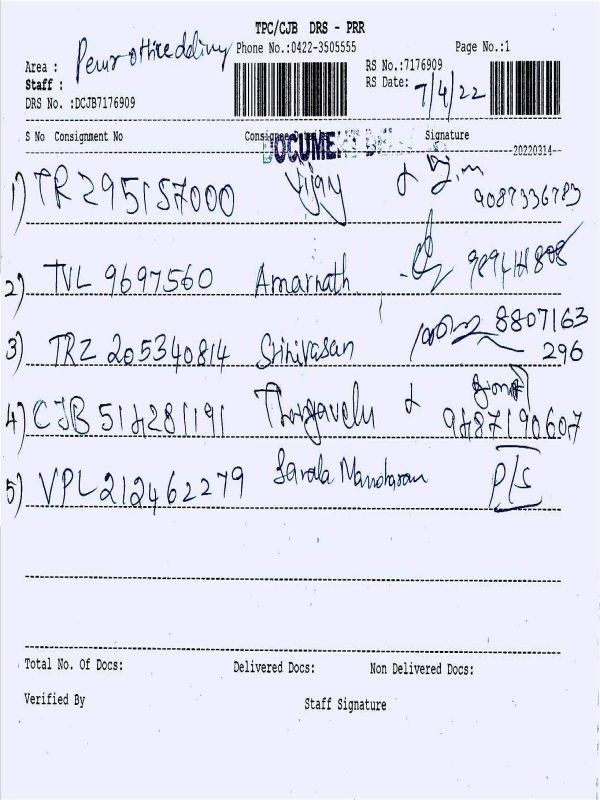 TPC/CJB DRS - PRR
Phone No.:0422-3505555
Page No.:1
Area :
Staff :
DRS No. :DCJB7176909
RS No.:7176909
RS Date: 7/4/22
S No Consignment No Consignee Details Signature
DOCUMENT
20220314
1) TRZ95157000 Vijay 9087336783
2) TVL 9697560 Amarnath
3) TRZ 205340814 Srinivasan 8807163
296
4) CJB 514281191 Thangavelu 9487190607
5) VPL212462279 Sarala Manoharan P/S
Total No. Of Docs: Delivered Docs: Non Delivered Docs:
Verified By Staff Signature